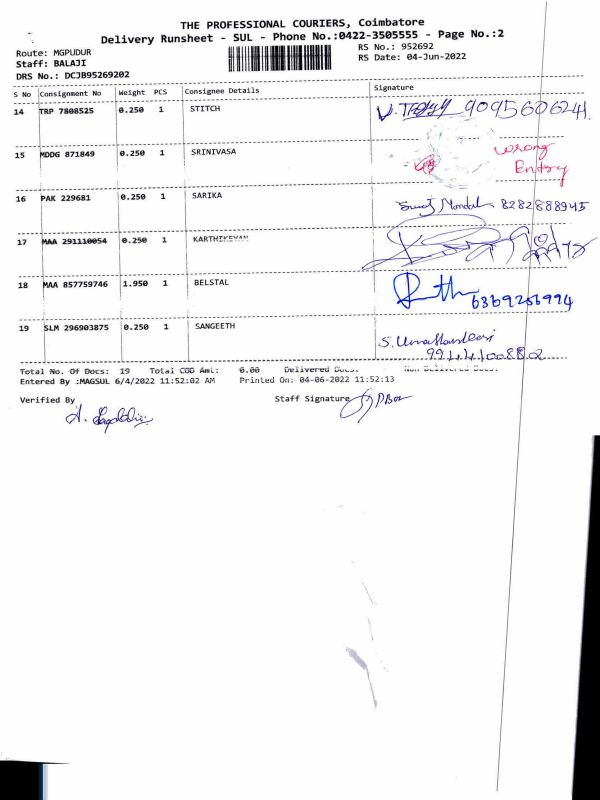 THE PROFESSIONAL COURIERS, Coimbatore
Delivery Runsheet - SUL - Phone No.:0422-3505555 - Page No.:2
Route: MGPUDUR RS No.: 952692
Staff: BALAJI RS Date: 04-Jun-2022
DRS No.: DCJB95269202
S No Consignment No Weight PCS Consignee Details Signature
14 TRP 7808525 0.250 1 STITCH 9095606241.
15 MDDG 871849 0.250 1 SRINIVASA wrong
Entry
16 PAK 229681 0.250 1 SARIKA Mondal 8282888945
17 MAA 291110054 0.250 1 KARTHIKEYAN
18 MAA 857759746 1.950 1 BELSTAL 6369256994
19 SLM 296903875 0.250 1 SANGEETH S.
99444008802
Total No. Of Docs: 19 Total COD Amt: 0.00 Delivered Docs: Non Delivered Docs:
Entered By :MAGSUL 6/4/2022 11:52:02 AM Printed On: 04-06-2022 11:52:13
Verified By Staff Signature